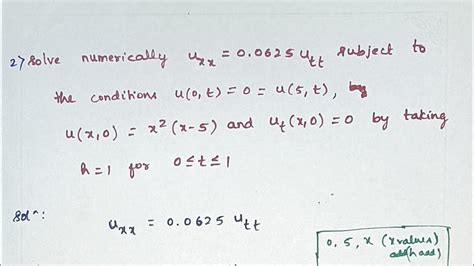 2) Solve numerically u_xx = 0.0625 u_tt subject to
the conditions u(0,t) = 0 = u(5,t), by
u(x,0) = x²(x-5) and u_t(x,0) = 0 by taking
h=1 for 0≤t≤1
Solⁿ:
u_xx = 0.0625 u_tt
0, 5, x (x values)
add(h add)